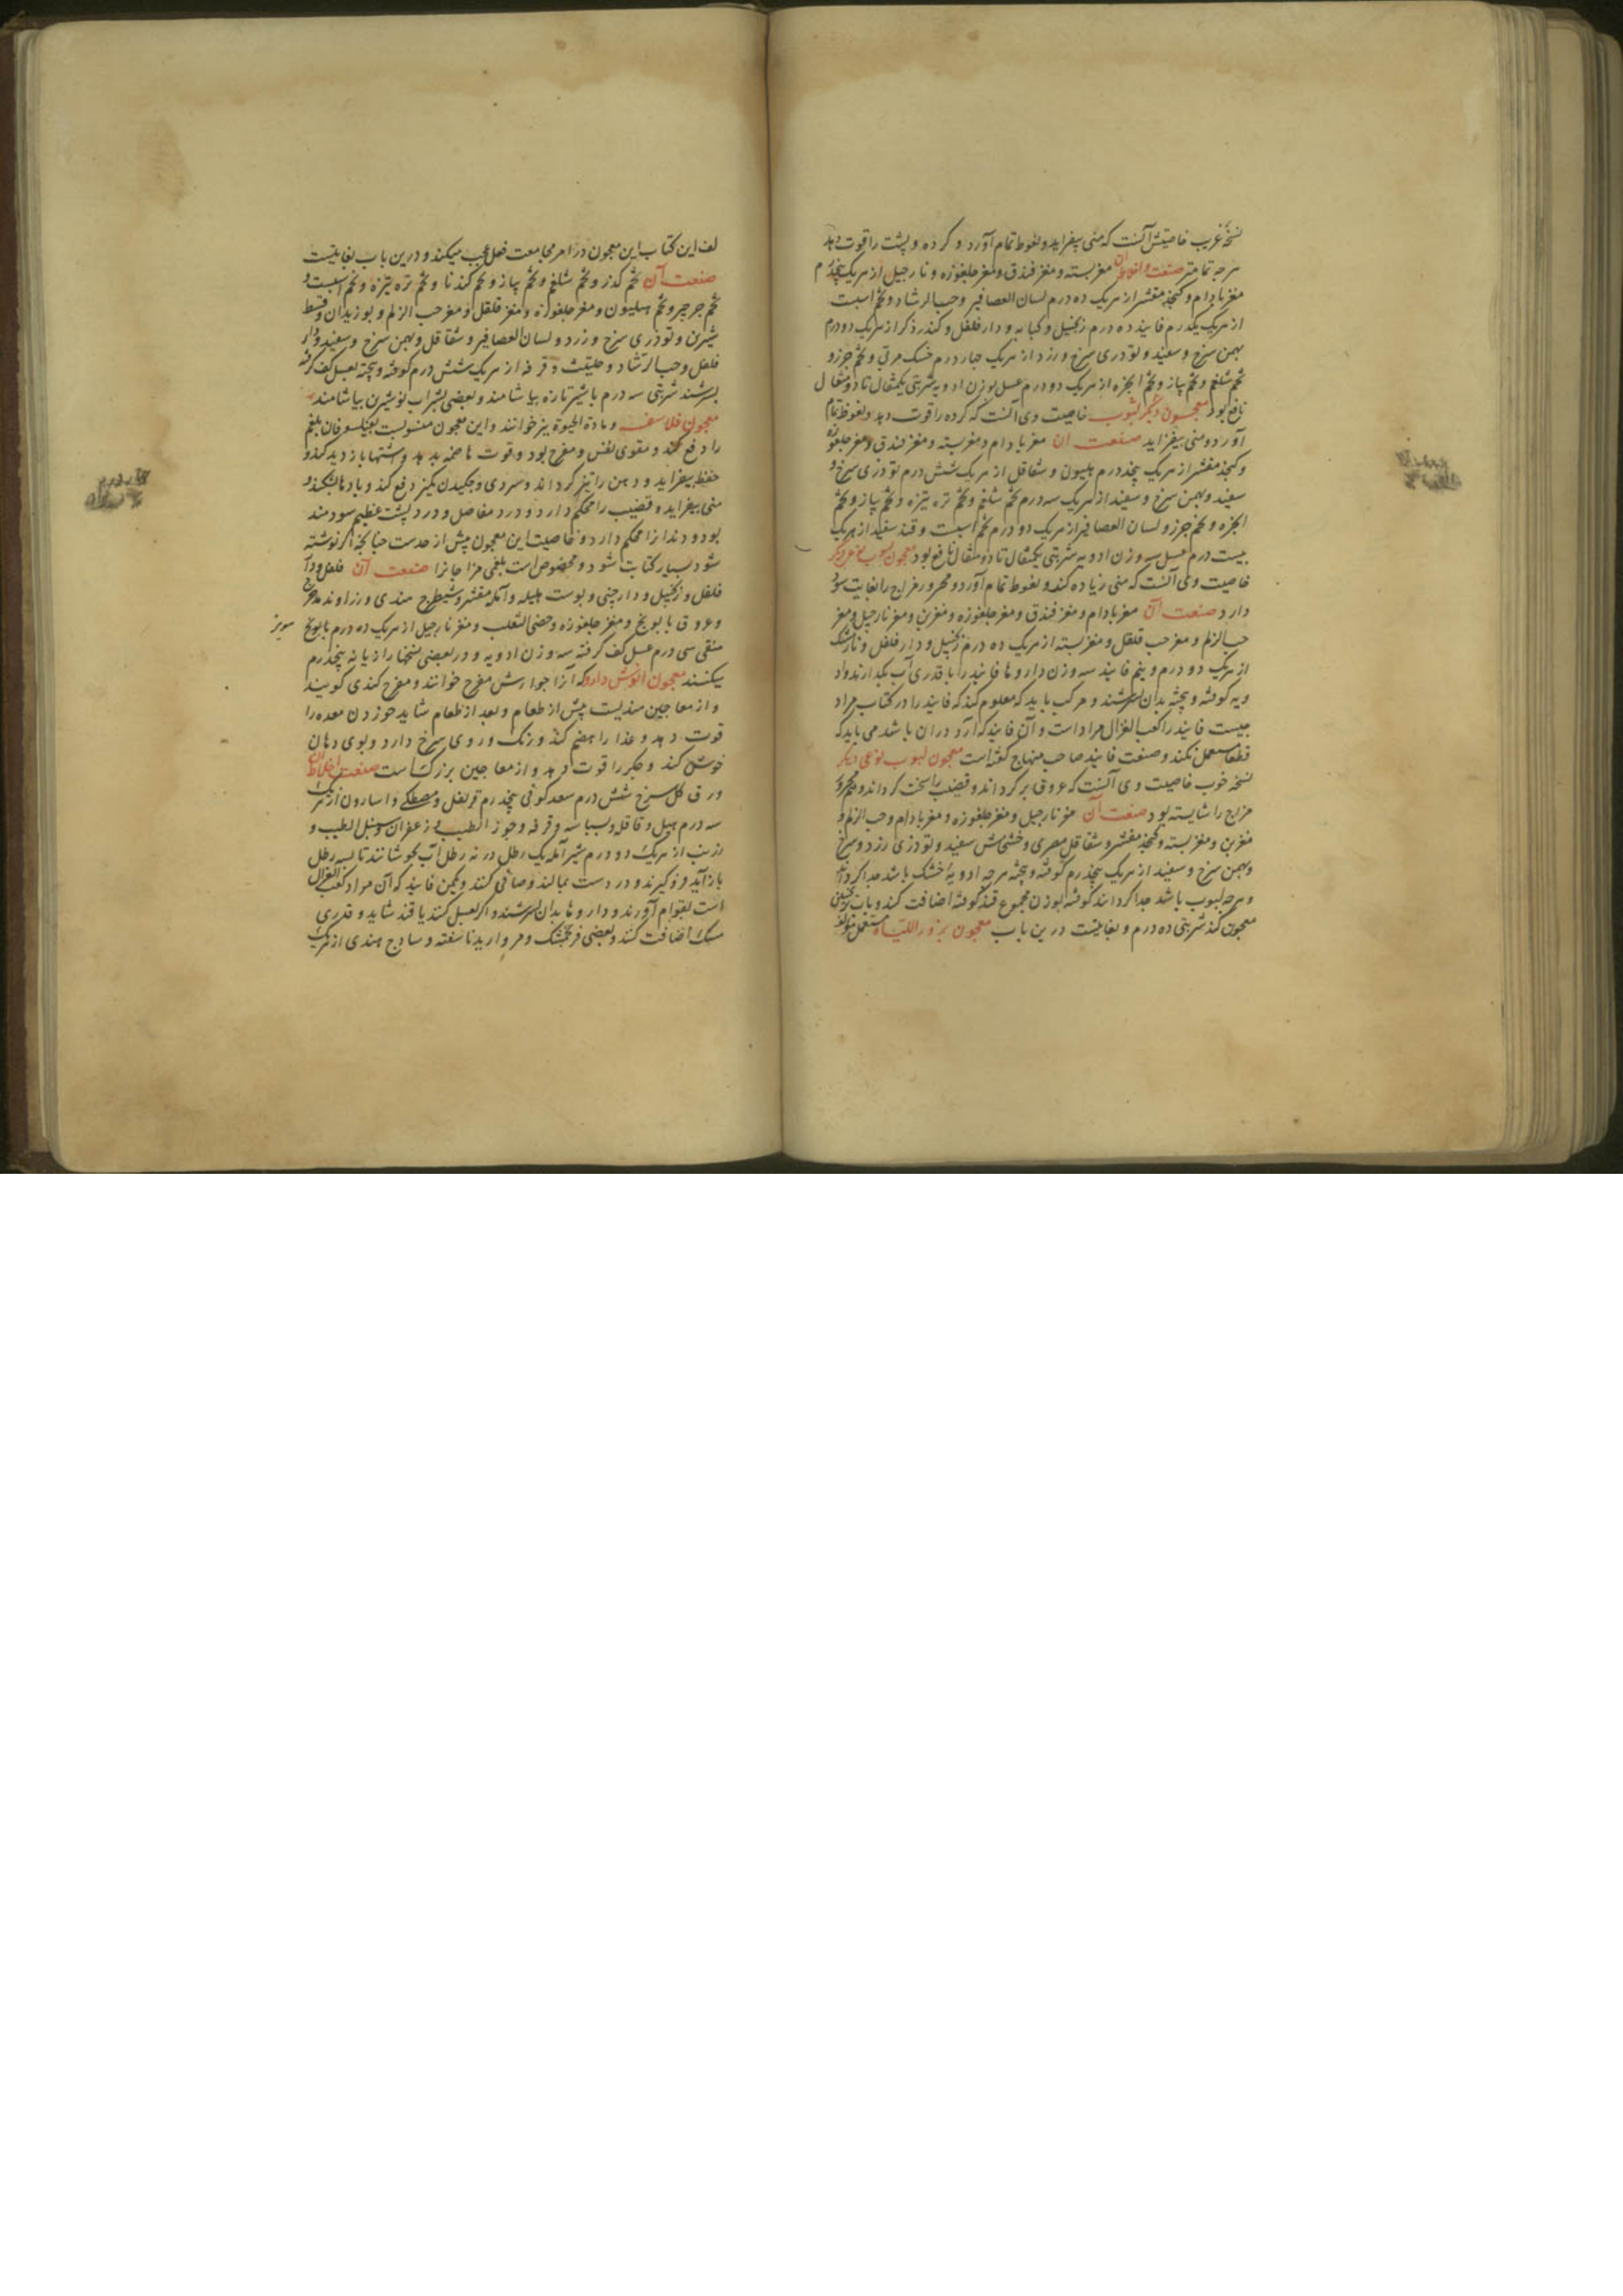 نسخهٔ غریب خاصیتش آنست که منی بیفزاید و نعوظ تمام آورد و گرده و پشت را قوت دهد
هرچه تمامتر صنعت و اخلاط آن مغز پسته و مغز فندق و مغز جلغوزه و نارجیل از هریک پنجدرم
مغز بادام و کنجد مقشر از هریک ده درم لسان العصافیر و حب الرشاد و تخم اسبست
از هریک یکدرم فانیذ ده درم زنجبیل و کبابه و دارفلفل و کندر ذکر از هریک دو درم
بهمن سرخ و سفید و تودری سرخ و زرد از هریک چهار درم خسک مربی و تخم جزر و
تخم شلغم و تخم پیاز و تخم انجره از هریک دو درم عسل بوزن ادویه شربتی یکمثقال تا دو مثقال
نافع بود معجون دیگر لبوب خاصیت وی آنست که گرده را قوت دهد و نعوظ تمام
آورد و منی بیفزاید صنعت آن مغز بادام و مغز پسته و مغز فندق و مغز جلغوزه
و کنجد مقشر از هریک پنجدرم هلیون و شقاقل از هریک شش درم تودری سرخ و
سفید و بهمن سرخ و سفید از هریک سه درم تخم شلغم و تخم تره تیزه و تخم پیاز و تخم
انجره و تخم جزر و لسان العصافیر از هریک دو درم تخم اسبست و قند سفید از هریک
بیست درم عسل سه وزن ادویه شربتی یکمثقال تا دو مثقال نافع بود معجون لبوب نوعی دیگر
خاصیت وی آنست که منی زیاده کند و نعوظ تمام آورد و محرور مزاج را بغایت سود
دارد صنعت آن مغز بادام و مغز فندق و مغز جلغوزه و مغز بن و مغز نارجیل و مغز
حب الزلم و مغز حب قلقل و مغز پسته از هریک ده درم زنجبیل و دارفلفل و نارمشک
از هریک دو درم و نیم فانیذ سه وزن داروها فانیذ را با قدری آب بگدازند و اد
ویه کوفته و بیخته بدان بسرشند و مرکب باید که معلوم کند که فانیذ را در کتاب مراد
چیست فانیذ را کعب الغزال مراد است و آن فانیذ که آرد دران باشد می باید که
قطعا مستعمل نکند و صنعت فانیذ صاحب منهاج گفته است معجون لبوب نوعی دیگر
نسخه خوب خاصیت وی آنست که عروق پر گرداند و قضیب را سخت گرداند و محرور
مزاج را شایسته بود صنعت آن مغز نارجیل و مغز جلغوزه و مغز بادام و حب الزلم و
مغز بن و مغز پسته و کنجد مقشر و شقاقل مصری و خشخاش سفید و تودری زرد و سرخ
و بهمن سرخ و سفید از هریک پنجدرم کوفته و بیخته هرچه ادویهٔ خشک باشد جدا گردانند
و هرچه لبوب باشد جدا گردانند کوفته بوزن مجموع قند کوفته اضافت کند و بآب
معجون کند شربتی ده درم و بغایتست درین باب معجون بزور اللتیاه مستعمل مؤلف
لف این کتاب این معجون در امر مجامعت فعل عجب میکند و درین باب بغایتست
صنعت آن تخم گذر و تخم شلغم و تخم پیاز و تخم گندنا و تخم تره تیزه و تخم اسبست و
تخم جرجیر و تخم هلیون و مغز جلغوزه و مغز قلقل و مغز حب الزلم و بوزیدان و قسط
شیرین و تودری سرخ و زرد و لسان العصافیر و شقاقل و بهمن سرخ و سفید و دار
فلفل و حب الرشاد و حلتیت و قرفه از هریک شش درم کوفته و بیخته بعسل کف گرفته
بسرشند شربتی سه درم با شیر تازه بیاشامند و بعضی بشراب نو شیرین بیاشامند
معجون فلاسفه و مادة الحیوة نیز خوانند و این معجون منسوبست بفیلسوفان بلغم
را دفع کند و مقوی نفس و مفرح بود و قوت هاضمه بدهد و اشتها بازدید کند و
حفظ بیفزاید و ذهن را تیز گرداند و سردی و چکیدن کمیز دفع کند و بادها بشکند و
منی بیفزاید و قضیب را محکم دارد و درد مفاصل و درد پشت عظیم سودمند
بود و دندانرا محکم دارد و خاصیت این معجون پیش از حدست چنانچه اگر نوشته
شود بسیار کتابت شود و مخصوص است بلغمی مزاجانرا صنعت آن فلفل و دار
فلفل و زنجبیل و دارچینی و پوست هلیله و آمله مقشر و شیطرج هندی و زراوند مدحرج
و عروق بابونج و مغز جلغوزه و خصی الثعلب و مغز نارجیل از هریک ده درم بابونج
مویز
منقی سی درم عسل کف گرفته سه وزن ادویه و در بعضی نسخها رازیانه پنجدرم
میکنند معجون انوش دارو که آنرا جوارش مفرح خوانند و مفرح کندی گویند
و از معاجین هندیست پیش از طعام و بعد از طعام شاید خوردن معده را
قوت دهد و غذا را هضم کند و رنگ و روی سرخ دارد و بوی دهان
خوش کند و جگر را قوت دهد و از معاجین بزرگ است صنعت و اخلاط آن
ورق گل سرخ شش درم سعد کوفی پنجدرم قرنفل و مصطکی و اسارون از هریک
سه درم هیل و قاقله و بسباسه و قرفه و جوز الطیب و زعفران و سنبل الطیب و
زرنب از هریک دو درم شیر آمله یک رطل در نه رطل آب بجوشانند تا بسه رطل
بازآید و فروگیرند و در دست بمالند و صافی کنند و یکمن فانیذ که آن مراد کعب الغزال
است بقوام آورند و داروها بدان بسرشند و اگر بعسل کنند یا قند شاید و قدری
مسک اضافت کنند و بعضی فرنجمشک و مروارید ناسفته و ساذج هندی از هریک